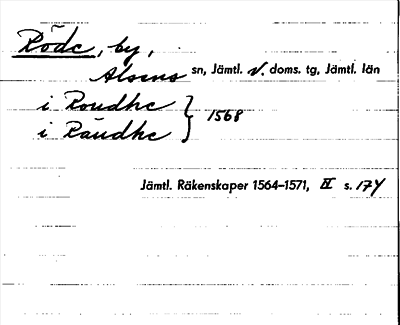 Röde, by,
Alsens sn, Jämtl. v. doms. tg, Jämtl. län
i Roudhe } 1568
i Räudhe
Jämtl. Räkenskaper 1564–1571, IV s. 174